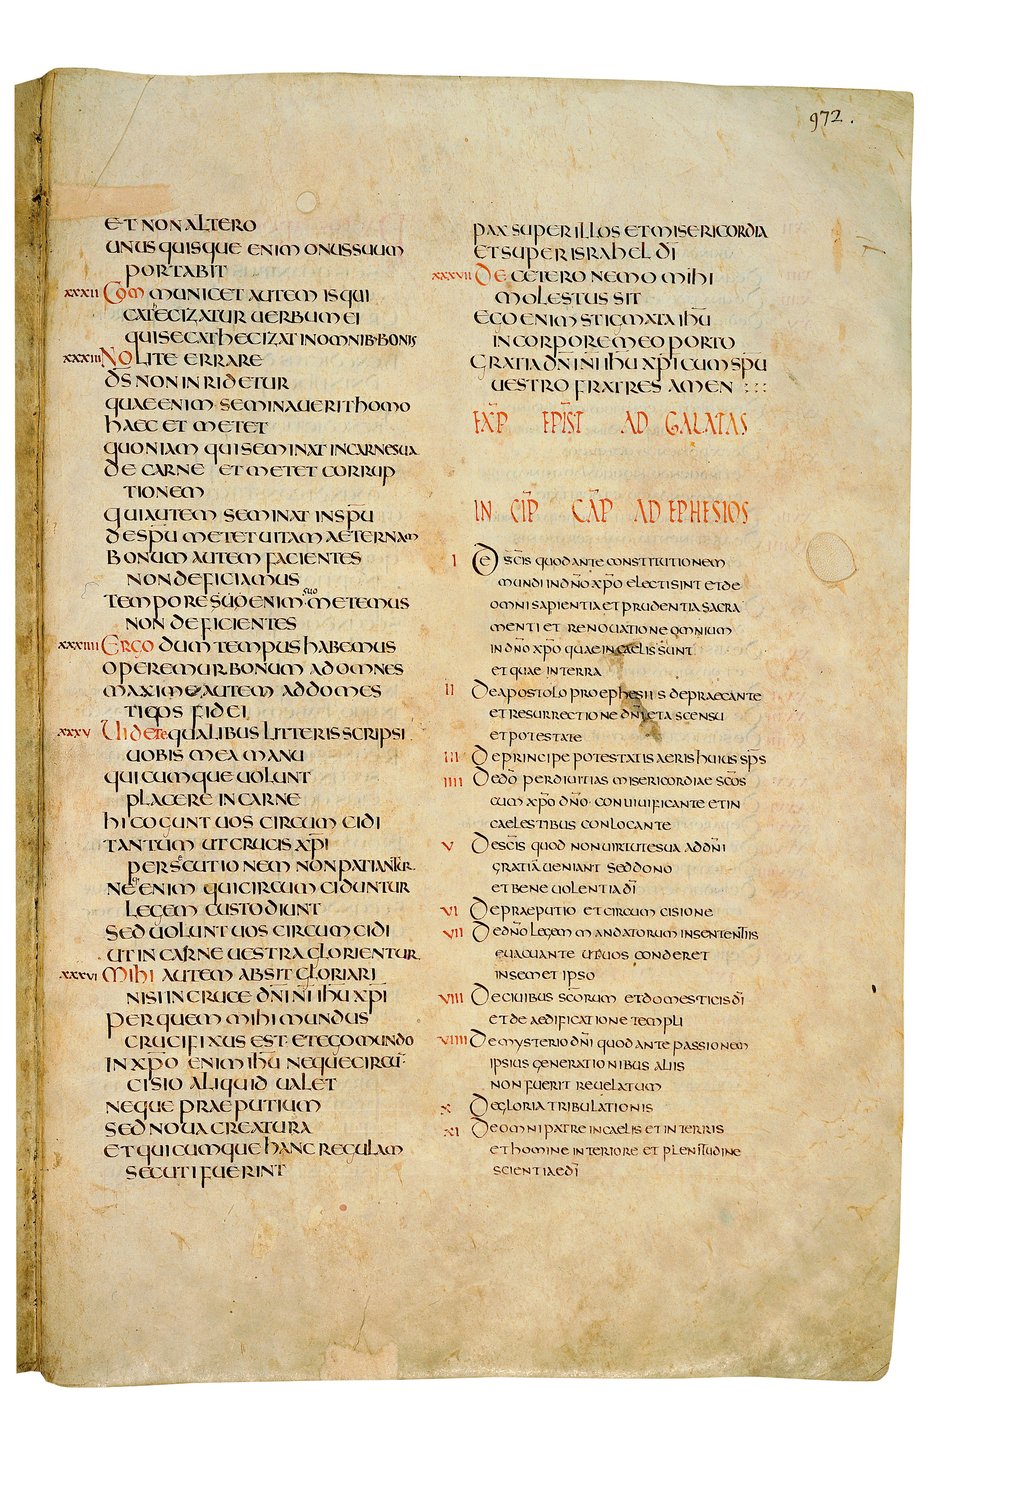 972.
ET NON ALTERO
UNUSQUISQUE ENIM ONUS SUUM
PORTABIT
XXXII COMMUNICET AUTEM IS QUI
CATECIZATUR UERBUM EI
QUI SE CATHECIZAT IN OMNIB· BONIS
XXXIII NOLITE ERRARE
D̄S NON INRIDETUR
QUAE ENIM SEMINAUERIT HOMO
HAEC ET METET
QUONIAM QUI SEMINAT IN CARNE SUA
DE CARNE ET METET CORRUP
TIONEM
QUI AUTEM SEMINAT IN SP̄U
DE SP̄U METET UITAM AETERNAM
BONUM AUTEM FACIENTES
NON DEFICIAMUS
TEMPORE SUO ENIM SUO METEMUS
NON DEFICIENTES
XXXIIII ERGO DUM TEMPUS HABEMUS
OPEREMUR BONUM AD OMNES
MAXIME AUTEM AD DOMES
TICOS FIDEI
XXXV UIDETE QUALIBUS LITTERIS SCRIPSI
UOBIS MEA MANU
QUICUMQUE UOLUNT
PLACERE IN CARNE
HI COGUNT UOS CIRCUMCIDI
TANTUM UT CRUCIS XP̄I
PERSECUTIONEM NON PATIANTUR
NEQ· ENIM QUI CIRCUMCIDUNTUR
LEGEM CUSTODIUNT
SED UOLUNT UOS CIRCUMCIDI
UT IN CARNE UESTRA GLORIENTUR
XXXVI MIHI AUTEM ABSIT GLORIARI
NISI IN CRUCE DN̄I N̄I IH̄U XP̄I
PER QUEM MIHI MUNDUS
CRUCIFIXUS EST· ET EGO MUNDO
IN XP̄O ENIM IH̄U NEQUE CIRCŪ
CISIO ALIQUID UALET
NEQUE PRAEPUTIUM
SED NOUA CREATURA
ET QUICUMQUE HANC REGULAM
SECUTI FUERINT
PAX SUPER ILLOS ET MISERICORDIA
ET SUPER ISRAHEL D̄I
XXXVII DE CETERO NEMO MIHI
MOLESTUS SIT
EGO ENIM STIGMATA IH̄U
IN CORPORE MEO PORTO
GRATIA DN̄I N̄I IH̄U XP̄I CUM SP̄U
UESTRO FRATRES AMEN
EXP̄ EPIST̄ AD GALATAS
INCIP̄ CAP̄ AD EPHESIOS
I De sc̄is quod ante constitutionem
mundi in dn̄o xp̄o electi sint et de
omni sapientia et prudentia sacra
menti et renouatione omnium
in dn̄o xp̄o quae in caelis sunt
et quae in terra
II De apostolo pro ephesiis depraecante
et resurrectione dn̄i et ascensu
et potestate
III De principe potestatis aeris huius sp̄s
IIII De dō perdiuitias misericordiae sc̄os
cum xp̄o dn̄o conuiuificante et in
caelestibus conlocante
V De sc̄is quod non uirtute sua ad dn̄i
gratiā ueniant sed dono
et beneuolentia d̄i
VI De praeputio et circumcisione
VII De dn̄o legem mandatorum in sententiis
euacuante ut duos conderet
in semet ipso
VIII De ciuibus sc̄orum et domesticis d̄i
et de aedificatione templi
VIIII De mysterio dn̄i quod ante passionem
ipsius generationibus aliis
non fuerit reuelatum
X De gloria tribulationis
XI De omni patre in caelis et in terris
et homine interiore et plenitudine
scientiae d̄i